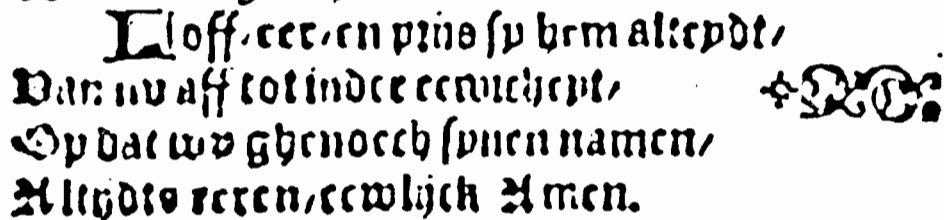 Lloff, eer, en prijs sy hem alteydt/
Van nu aff tot inder eewicheyt/
Op dat wy ghenoech synen namen/
Altijdts eeren/eewlijck Amen.